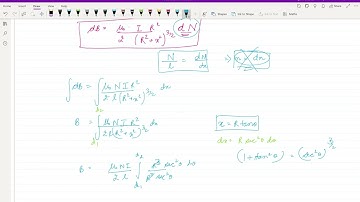 dB = μ₀ I R² / 2 (R²+x²)^3/2 dN
N/l = dN/dx ⇒ n dx
∫dB = ∫ μ₀ N I R² / 2 l (R²+x²)^3/2 dx
B = ∫ μ₀ N I R² / 2 l (R²+x²)^3/2 dx
x = R tanθ
dx = R sec²θ dθ
(1 + tan²θ)^3/2 = (sec²θ)^3/2
B = μ₀NI / 2 l ∫ R³ sec²θ dθ / R³ sec³θ